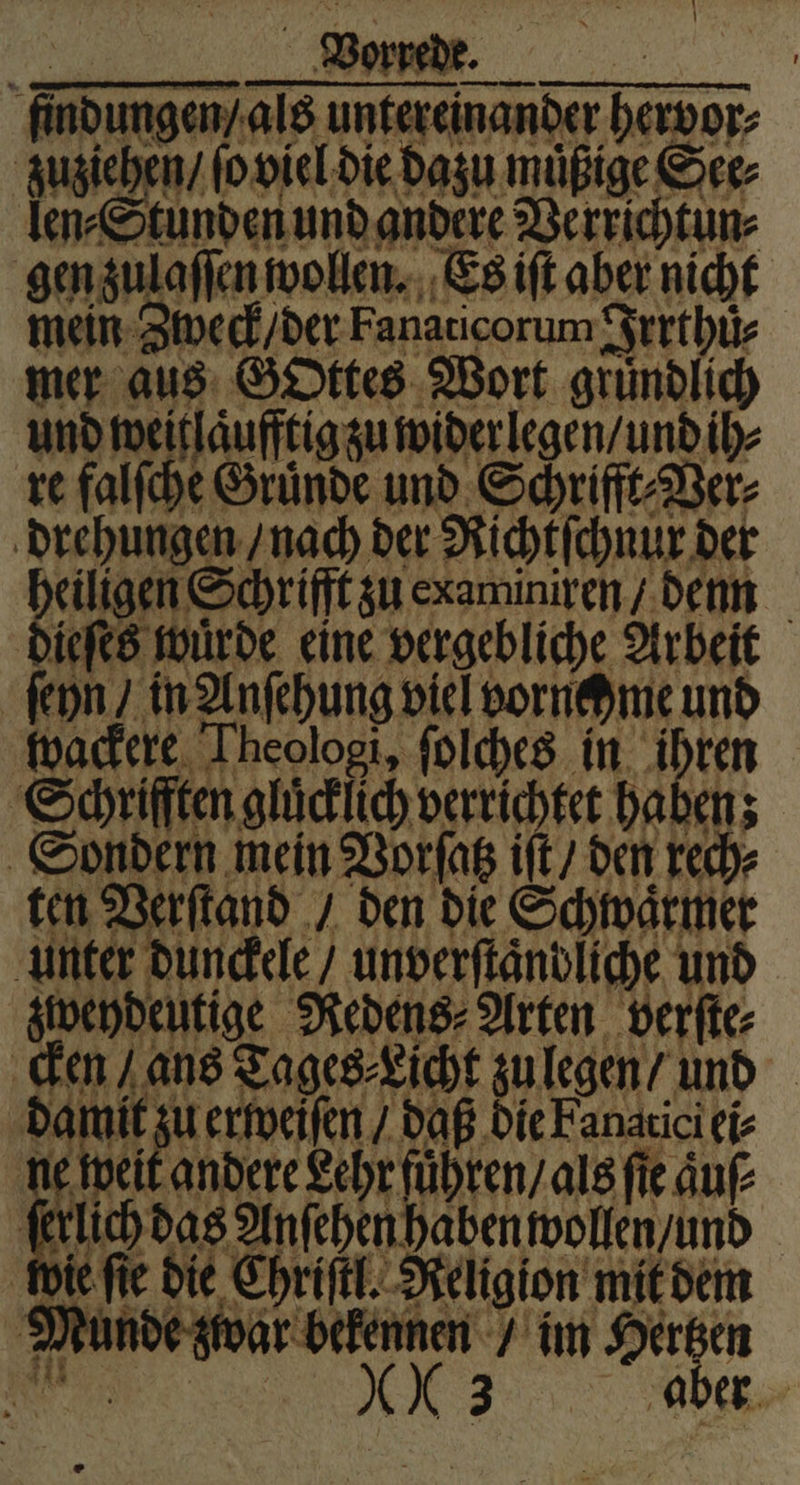 Vorrede.
findungen/ als untereinander hervor⸗
zuziehen/ ſo viel die dazu muͤßige See⸗
len⸗Stunden und andere Verrichtun⸗
gen zulaſſen wollen. Es iſt aber nicht
mein Zweck/ der Fanaticorum Irrthuͤ⸗
mer aus GOttes Wort gruͤndlich
und weitlaͤufftig zu widerlegen/ und ih⸗
re falſche Gruͤnde und Schrifft⸗Ver⸗
drehungen / nach der Richtſchnur der
heiligen Schrifft zu examiniren / denn
dieſes wuͤrde eine vergebliche Arbeit
ſeyn / in Anſehung viel vornehme und
wackere Theologi, ſolches in ihren
Schrifften gluͤcklich verrichtet haben;
Sondern mein Vorſatz iſt / den rech⸗
ten Verſtand / den die Schwaͤrmer
unter dunckele / unverſtaͤndliche und
zweydeutige Redens⸗Arten verſte⸗
cken / ans Tages⸗Licht zu legen / und
damit zu erweiſen / daß die Fanatici ei⸗
ne weit andere Lehr fuͤhren/ als ſie aͤuſ⸗
ſerlich das Anſehen haben wollen/ und
wie ſie die Chriſtl. Religion mit dem
Munde zwar bekennen / im Hertzen
)( )( 3 aber